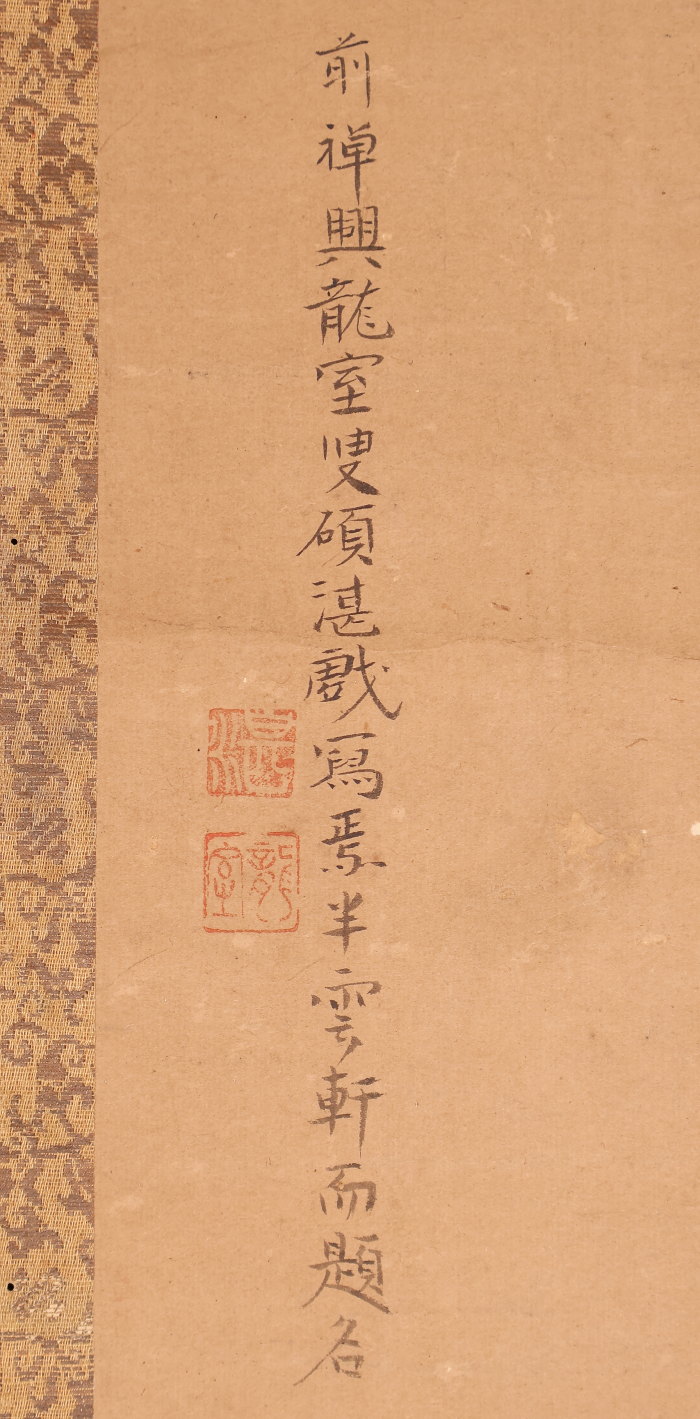 前禅興龍室叟碩湛戯寫焉半雲軒而題名
龍室